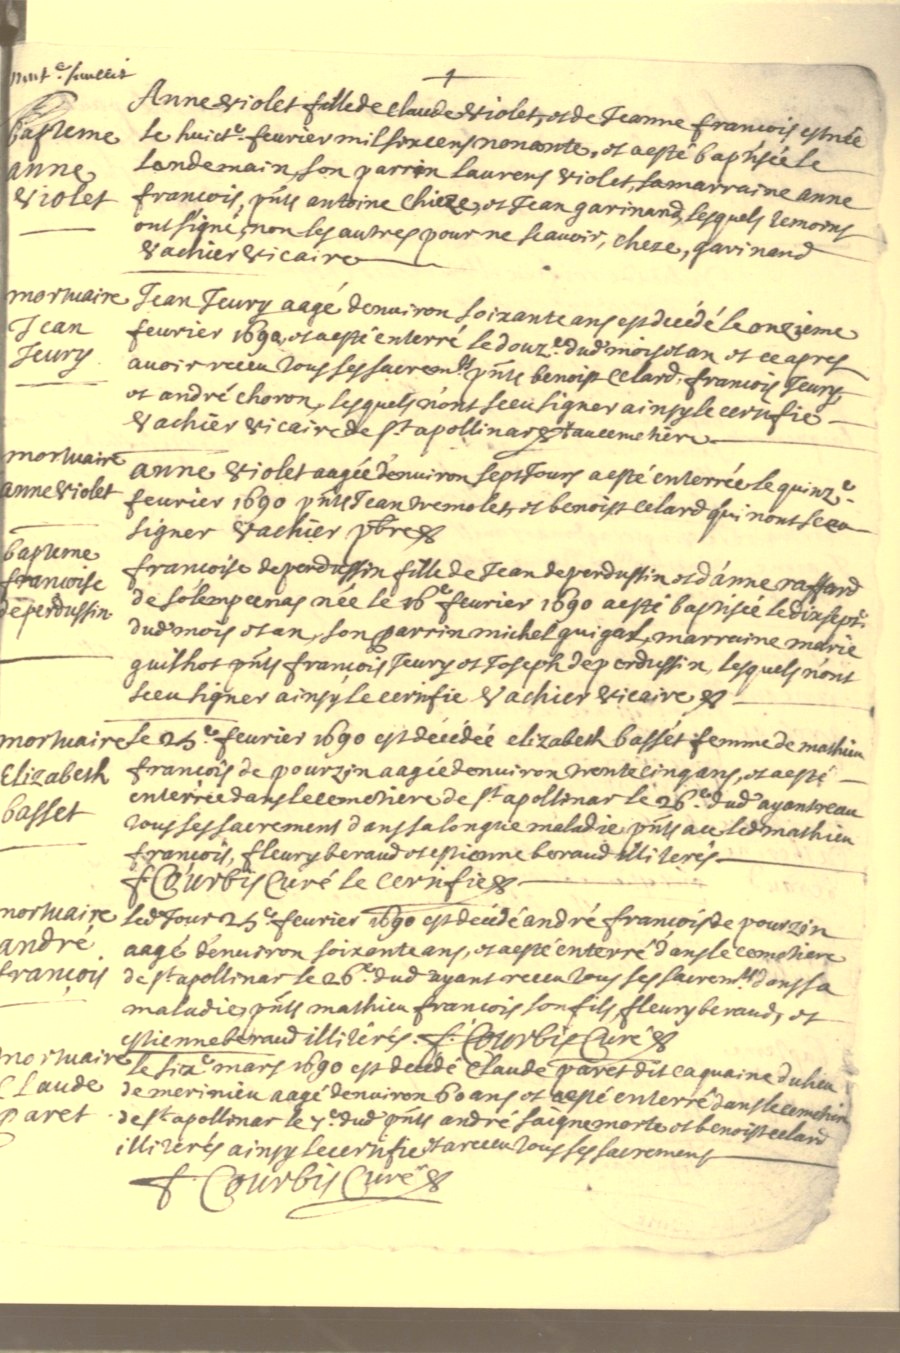 Bapteme
anne
Violet
Anne Violet fille de Claude Violet, et de Jeanne françois est née
le huict.e feurier mil six cens nonante, et a esté baptisée le
landemain, son parrin laurens Violet, sa marraine anne
françois, pñts antoine Chieze, et Jean garinand, lesquels temoins
ont signé, non les autres pour ne scauoir, cheze, garinand
Vachier Vicaire
mortuaire
Jean
Jeury
Jean Jeury aagé denuiron soixante ans est decédé le onzieme
feurier 1690, et a esté enterré le douz.e dud mois et an et ce apres
auoir receu tous ses sacrem.ts pñts benoist Celard, françois Jeury
et andré Choron, lesquels n'ont sceu signer ainsy le certifie
Vachier Vicaire de s.t apollinar & au cemetiere
mortuaire
anne Violet
anne Violet aagée denuiron sept Jours a esté enterrée le quinz.e
feurier 1690 pñts Jean tremolet, et benoist Celard qui n'ont sceu
signer Vachier pbre &
bapteme
françoise
deperdussin
françoise deperdussin fille de Jean deperdussin et d'anne raffard
de solempeenas née le 16.e feurier 1690 a esté baptisée le dixsept.e
dud mois et an, son parrin michel guigal, marraine marie
guilhot pñts françois Jeury et Joseph deperdussin, lesquels n'ont
sceu signer ainsy le certifie Vachier Vicaire &
mortuaire
Elizabeth
basset
le 25.e feurier 1690 est décédée elizabeth basset femme de mathieu
françois de pourzin aagée denuiron trente cinq ans, et a esté
enterrée dans le cemetiere de s.t apollinar le 26.e dud ayant receu
tous ses sacrement dans sa longue maladie pñts ace led mathieu
françois, fleury beraud et estienne beraud illiterés
f. Courbis Curé le certifie &
mortuaire
andré
françois
led Jour 25.e feurier 1690 est decédé andré françois de pourzin
aagé denuiron soixante ans, et a esté enterré dans le cemetiere
de s.t apollinar le 26.e dud ayant receu tous ses sacrem.ts dans sa
maladie, pñts mathieu françois son fils, fleury beraud, et
estienne beraud illiterés. f. Courbis Curé &
mortuaire
Claude
Paret
le six.e mars 1690 est decédé Claude paret dit Caquaine du lieu
de merinieu aagé denuiron 60 ans et a esté enterré dans le cemetiere
de s.t apollinar le 7.e dud pñts andré saignemorte et benoist celard
illiterés ainsy le certifie & a receu tous ses sacrement
f. Courbis Curé &